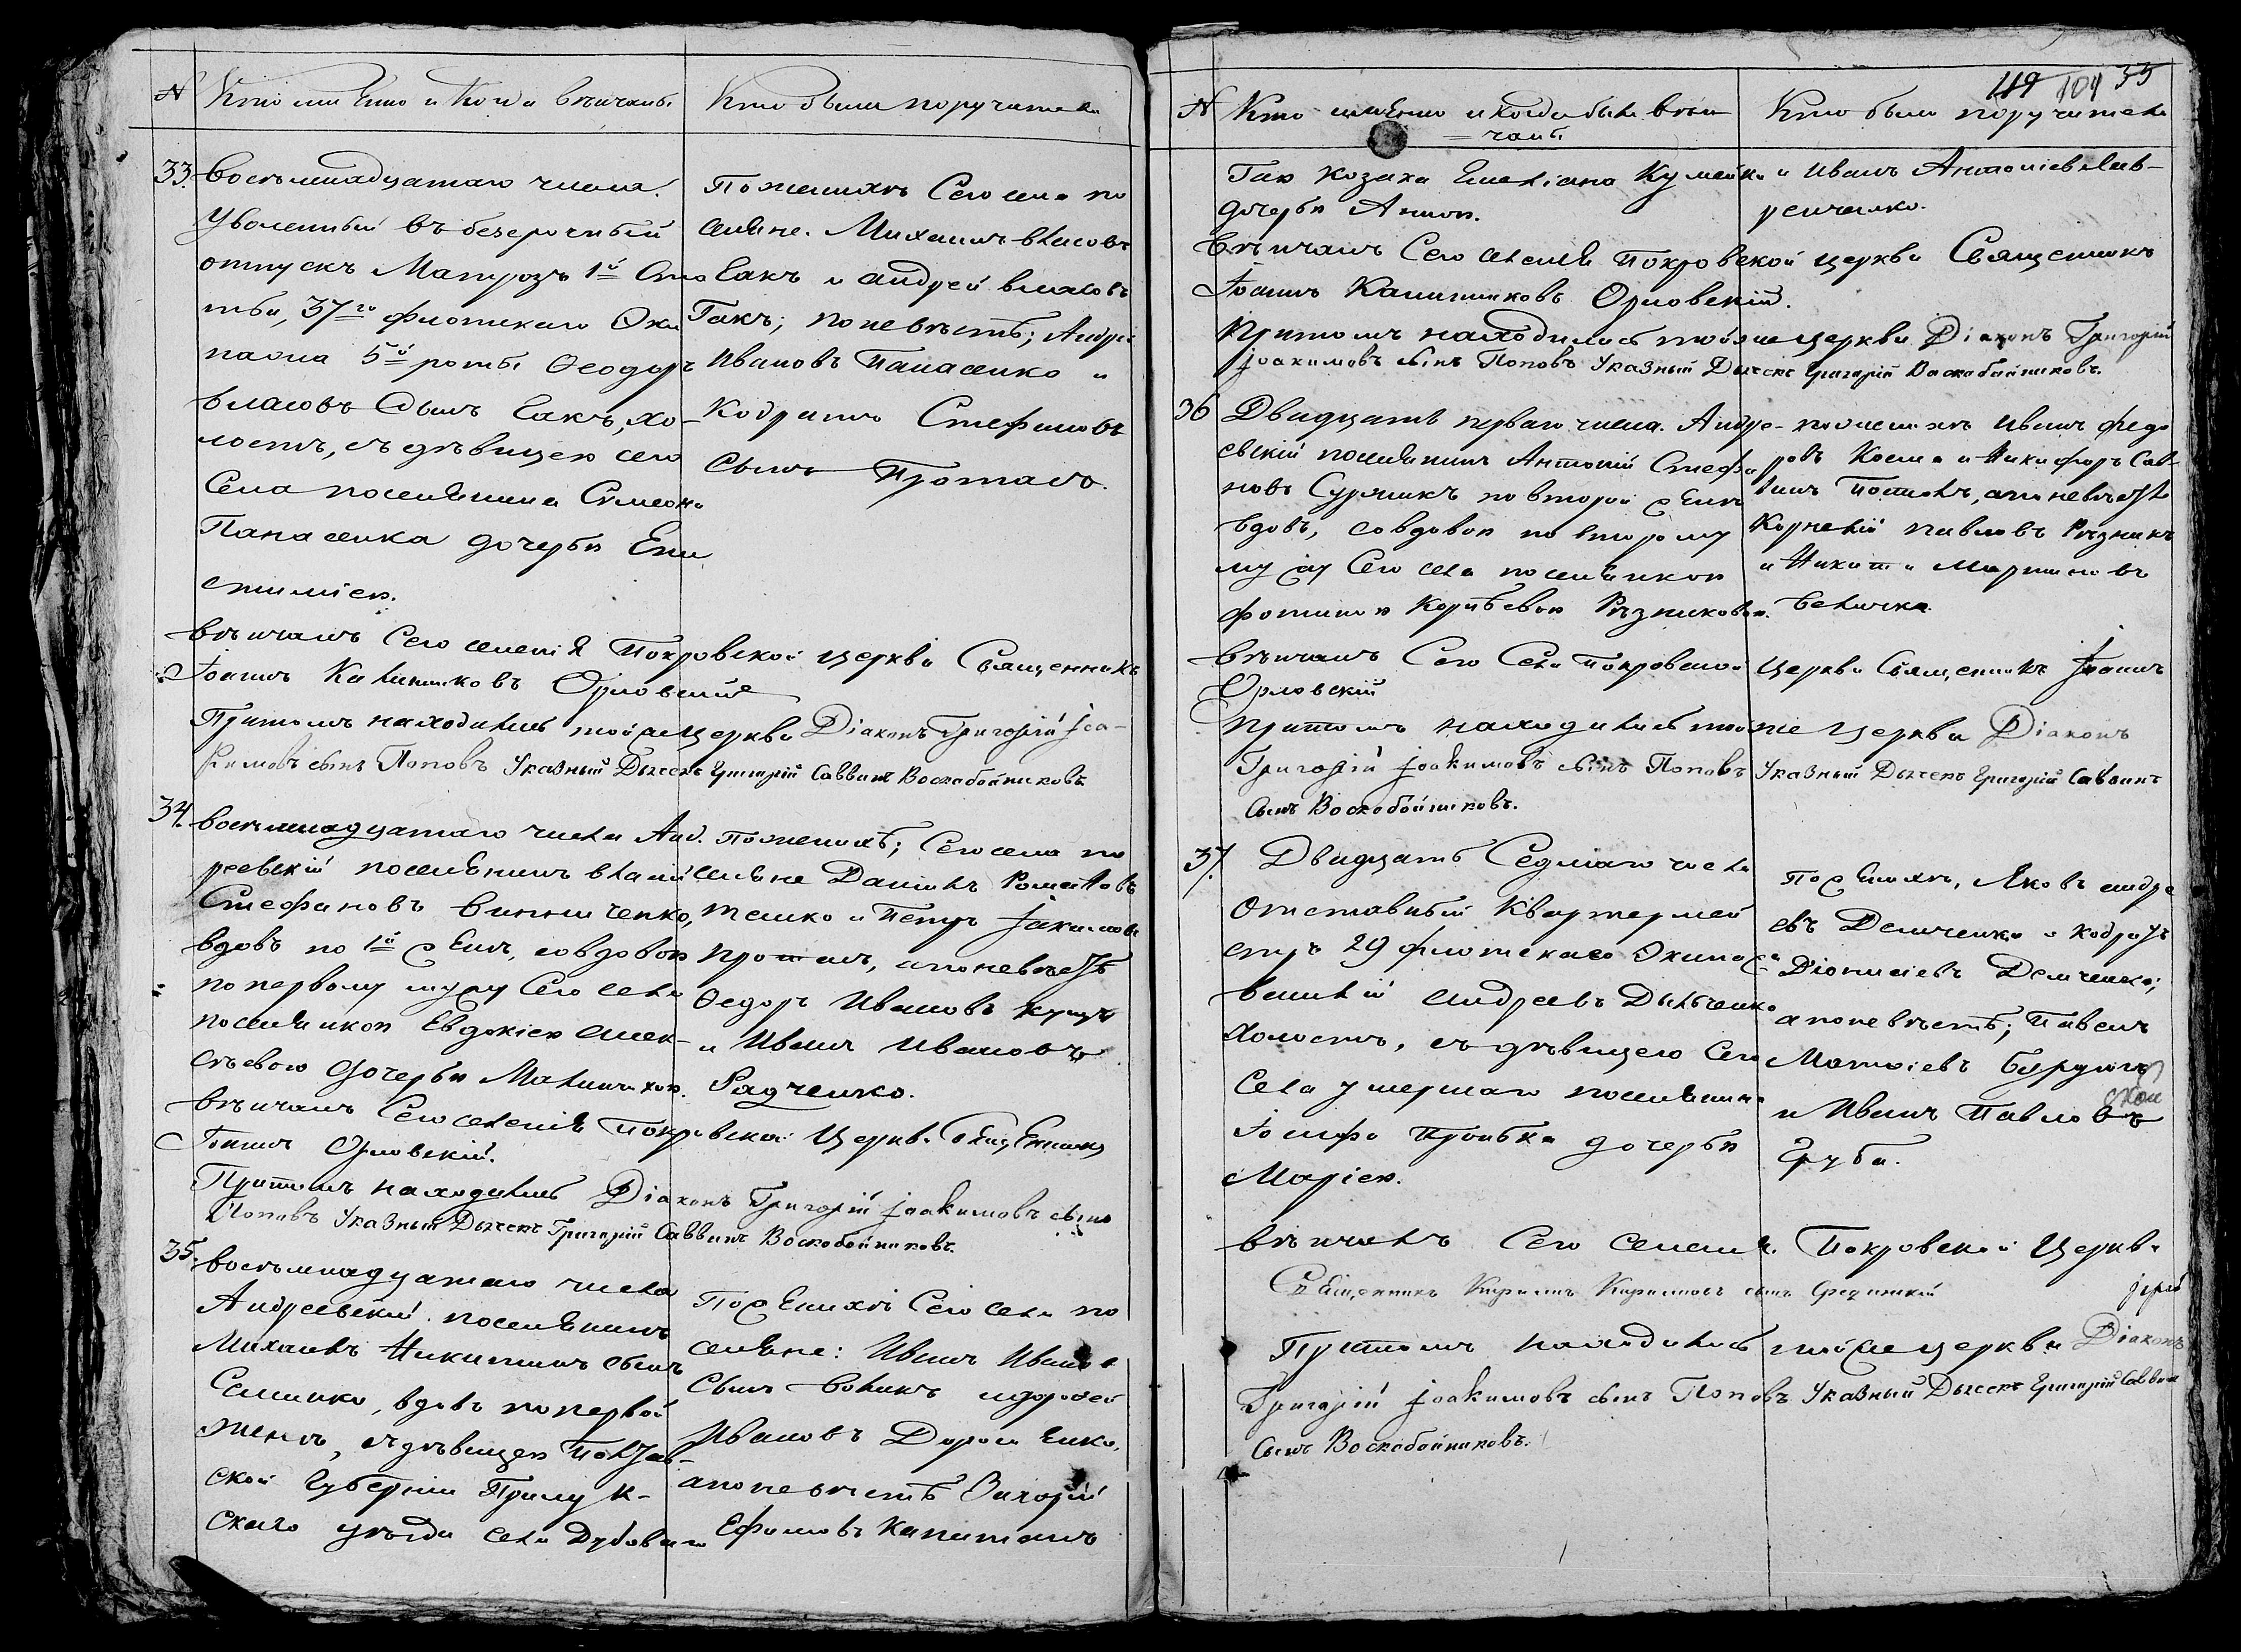 № Кто имѣнно и когда вѣнчаны
Кто были поручители
33. Восѣмнадцатаго числа.
Уволенный въ безсрочный
отпускъ Матрозъ 1й Ста
тьи, 37го флотскаго Эки
пажа 5й роты Ѳеодоръ
Власовъ сынъ Еакъ, хо-
лостъ, съ дѣвицею сего
Села поселянина Симеона
Панасенка дочерью Епи
стиміею.
По женихѣ Сего села по
селяне. Михаилъ Власовъ
Еакъ и андрей власовъ
Гакъ; по невѣстѣ; Андрей
Ивановъ Панасенко и
Кодратъ Стефановъ
Сынъ Протасъ.
Вѣнчалъ Сего селенія Покровской церкви Священникъ
Іоаннъ Калинниковъ Орловскій
Притомъ находились тойже церкви Діаконъ Григорій Іоа-
кимовъ сынъ Поповъ Указный Дьячекъ Григорій Саввинъ Воскобойниковъ
34. Восѣмнадцатаго числа Анд.
реевскій поселянинъ
Стефановъ Винниченко,
вдовъ по 1й женѣ, совдовою
по первому мужу Сего села
поселянкою Евдокіею Алек-
сѣевою дочерью
По женихѣ; Сего села по
селяне Даніилъ
и Петръ Іакимовъ
Протасъ, а по невѣстѣ
Ѳедоръ Ивановъ
и Иванъ Ивановъ
Радченко.
Вѣнчалъ Сего селенія Покровской Церкви Священникъ
Іоаннъ Орловскій.
Притомъ находились Діаконъ Григорій Іоакимовъ сынъ
Поповъ Указный Дьячекъ Григорій Саввинъ Воскобойниковъ.
35. Восѣмнадцатаго числа
Андреевскій поселянинъ
Михаилъ Никитинъ сынъ
вдовъ по первой
женѣ, съ дѣвицею Полтав-
ской Губерніи Прилук-
скаго уѣзда села Дубоваго
По женихѣ Сего села по
селяне: Иванъ Ивановъ
Сынъ
Ивановъ
а по невѣстѣ Захарій
Ефимовъ Капитанъ
119 104 35
№ Кто имѣнно и когда были вѣн
=чаны
Кто были поручители
Гая козака Емеліана
дочерью Анною.
и Иванъ Антоніевъ Лав-
ренченко.
Вѣнчалъ Сего селенія Покровской церкви Священникъ
Іоаннъ Калинниковъ Орловскій.
Притомъ находились тойже церкви Діаконъ Григорій
Іоакимовъ сынъ Поповъ Указный Дьячекъ Григорій Воскобойниковъ.
36 Двадцать перваго числа. Андре-
евскій поселянинъ Антоній Стефа
новъ по второй женѣ
вдовъ, совдовою по второму
мужу Сего села поселянкою
Фотиніею Корнѣевою Рѣзниковою.
по женихѣ Иванъ Федо
ровъ и Никифоръ Сав-
винъ а по невѣстѣ
Корнелій Павловъ Рѣзникъ
и Никита Мартиновъ
Беличка.
Вѣнчалъ Сего Села Покровской церкви Священникъ Іоаннъ
Орловскій
Притомъ находились тойже Церкви Діаконъ
Григорій Іоакимовъ сынъ Поповъ Указный Дьячекъ Григорій Саввинъ
Сынъ Воскобойниковъ.
37. Двадцать Седмаго числа
Отставный Квартермей
стръ 29 флотскаго Экипажа
андреевъ
Холостъ, съ дѣвицею Сего
Села умершаго поселянина
Іосифа дочерью
Маріею.
По женихѣ, Яковъ андре
евъ Демченко и Кодратъ
Діонисіевъ Демченко;
а по невѣстѣ; Павелъ
Матѳіевъ
и Иванъ Павловъ
Груба.
Вѣнчалъ Сего селенія Покровской Церкви
Священникъ Кирилъ Кириловъ сынъ
Притомъ находились тойже церкви Діаконъ
Григорій Іоакимовъ сынъ Поповъ Указный Дьячекъ Григорій Саввинъ
Сынъ Воскобойниковъ.